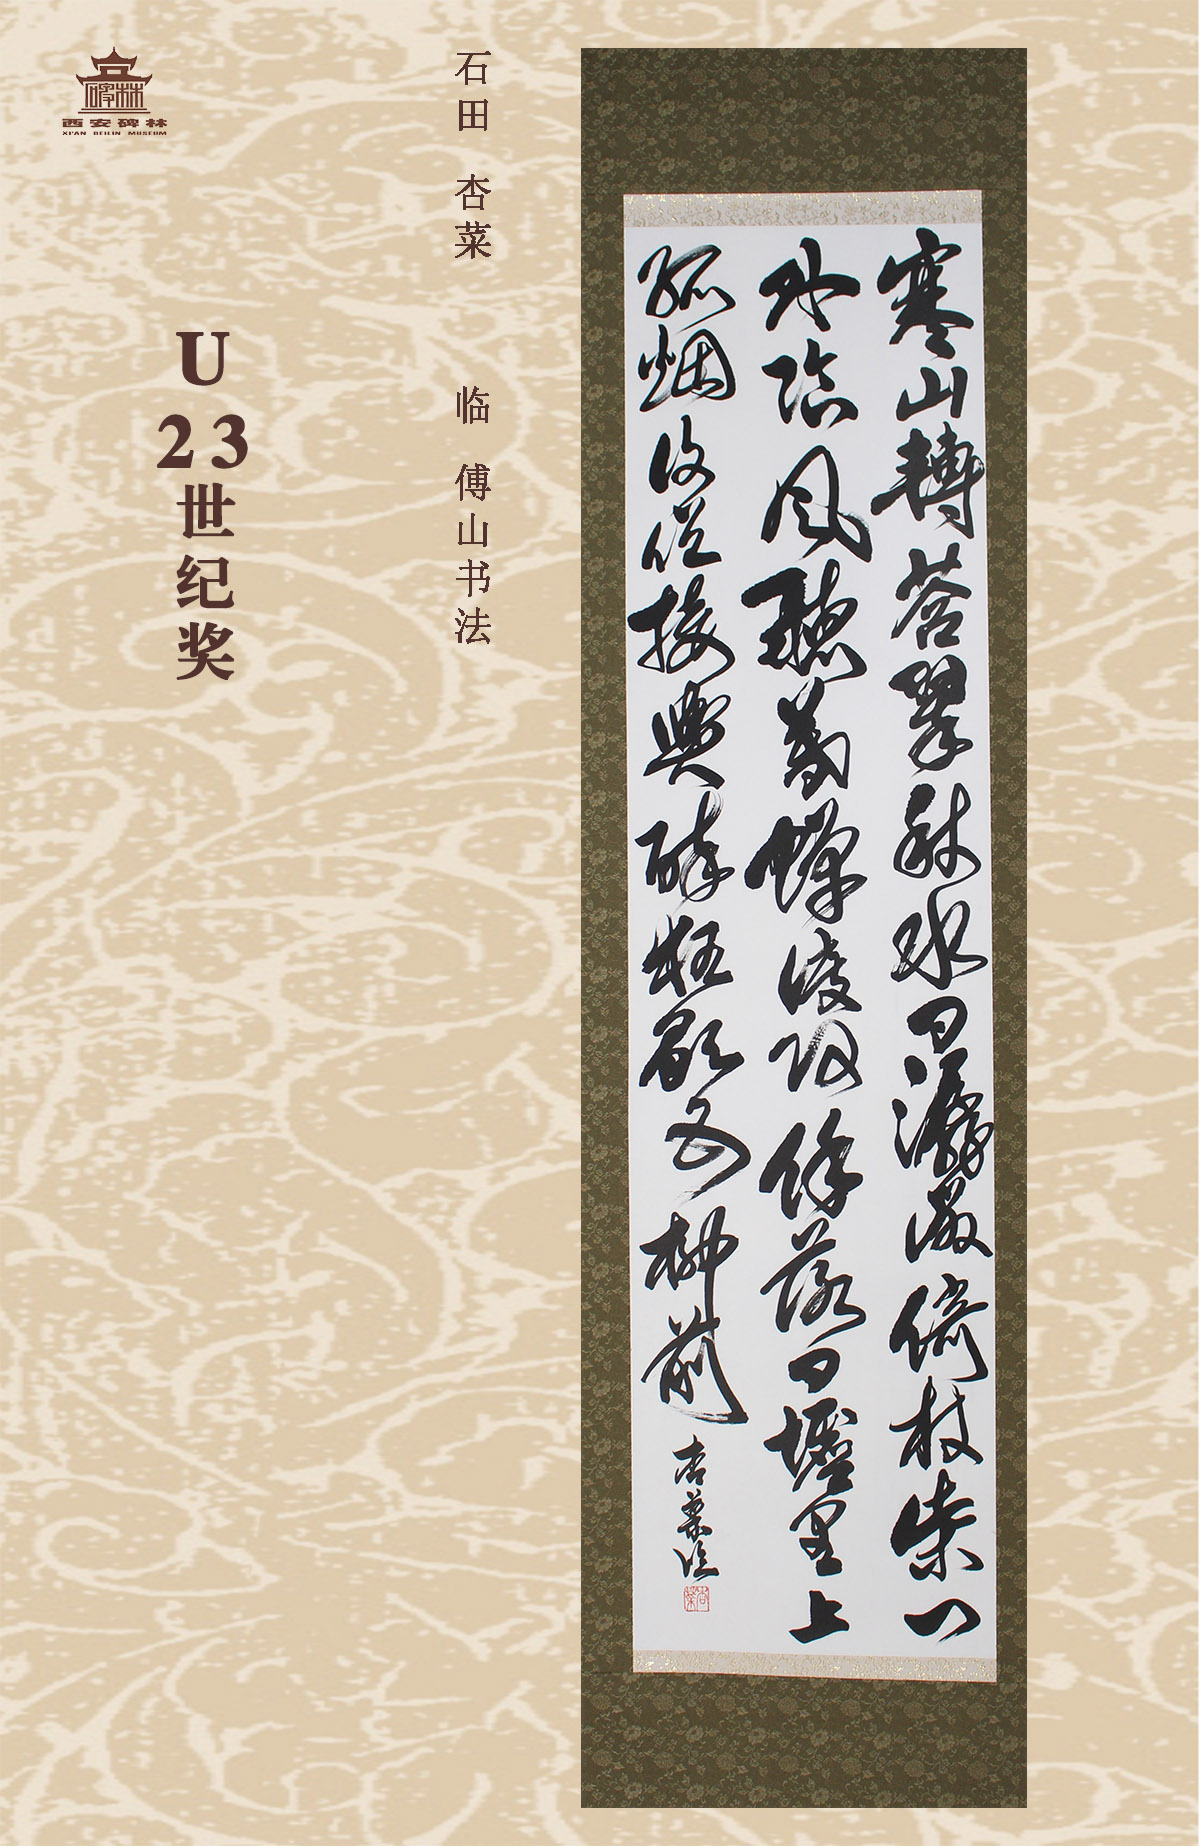 西安碑林
XI'AN BEILIN MUSEUM
U23世纪奖
石田 杏菜 临 傅山书法
寒山轉蒼翠秋水日潺湲倚杖柴门
外临風聽暮蟬渡頭餘落日墟里上
孤烟復值接輿醉狂歌五柳前
杏菜临
杏菜